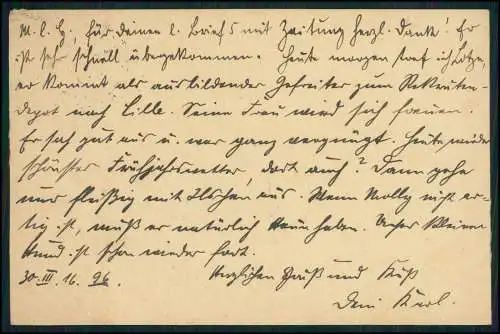 M. l. E., für deinen l. Brief 5 mit Zeitung herzl. Dank! Er
ist sehr schnell übergekommen. Heute morgen traf ich Lotze,
er kommt als ausbildender Gefreiter zum Rekruten-
depot nach Lille. Seine Frau wird sich freuen.
Er sah gut aus u. war ganz vergnügt. Heute wieder
schönstes Frühjahrswetter, dort auch? Dann gehe
nur fleißig mit Ilschen aus. Wenn Molly nicht er-
tig ist, muß er natürlich haben. Unser kleiner
Hund ist schon wieder fort.
30. III. 16. 96. Herzlichen Gruß und Kuß
Dein Karl.